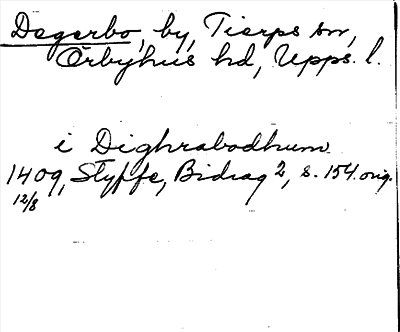 Degerbo, by, Tierps sn,
Örbyhus hd, Upps. l.
i Dighrabodhum
1409, Styffe, Bidrag 2, s. 154. orig.
12/8